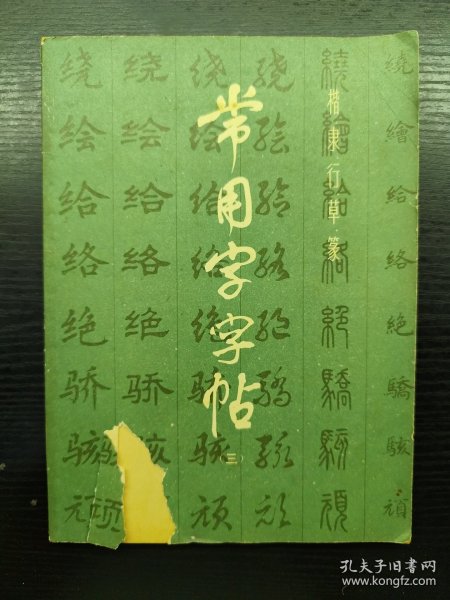 常用字字帖
(三)
楷隶行草篆
绕 绕 绕 绕 繞 繞
绘 绘 绘 绘 繪 繪
给 给 给 给 給 給
络 络 络 络 絡 絡
绝 绝 绝 绝 絕 絕
骄 骄 骄 驕 驕 驕
骇 骇 骇 骇 駭 駭
顽 顽 顽 顽 頑 頑
孔夫子旧书网
www.kongfz.com